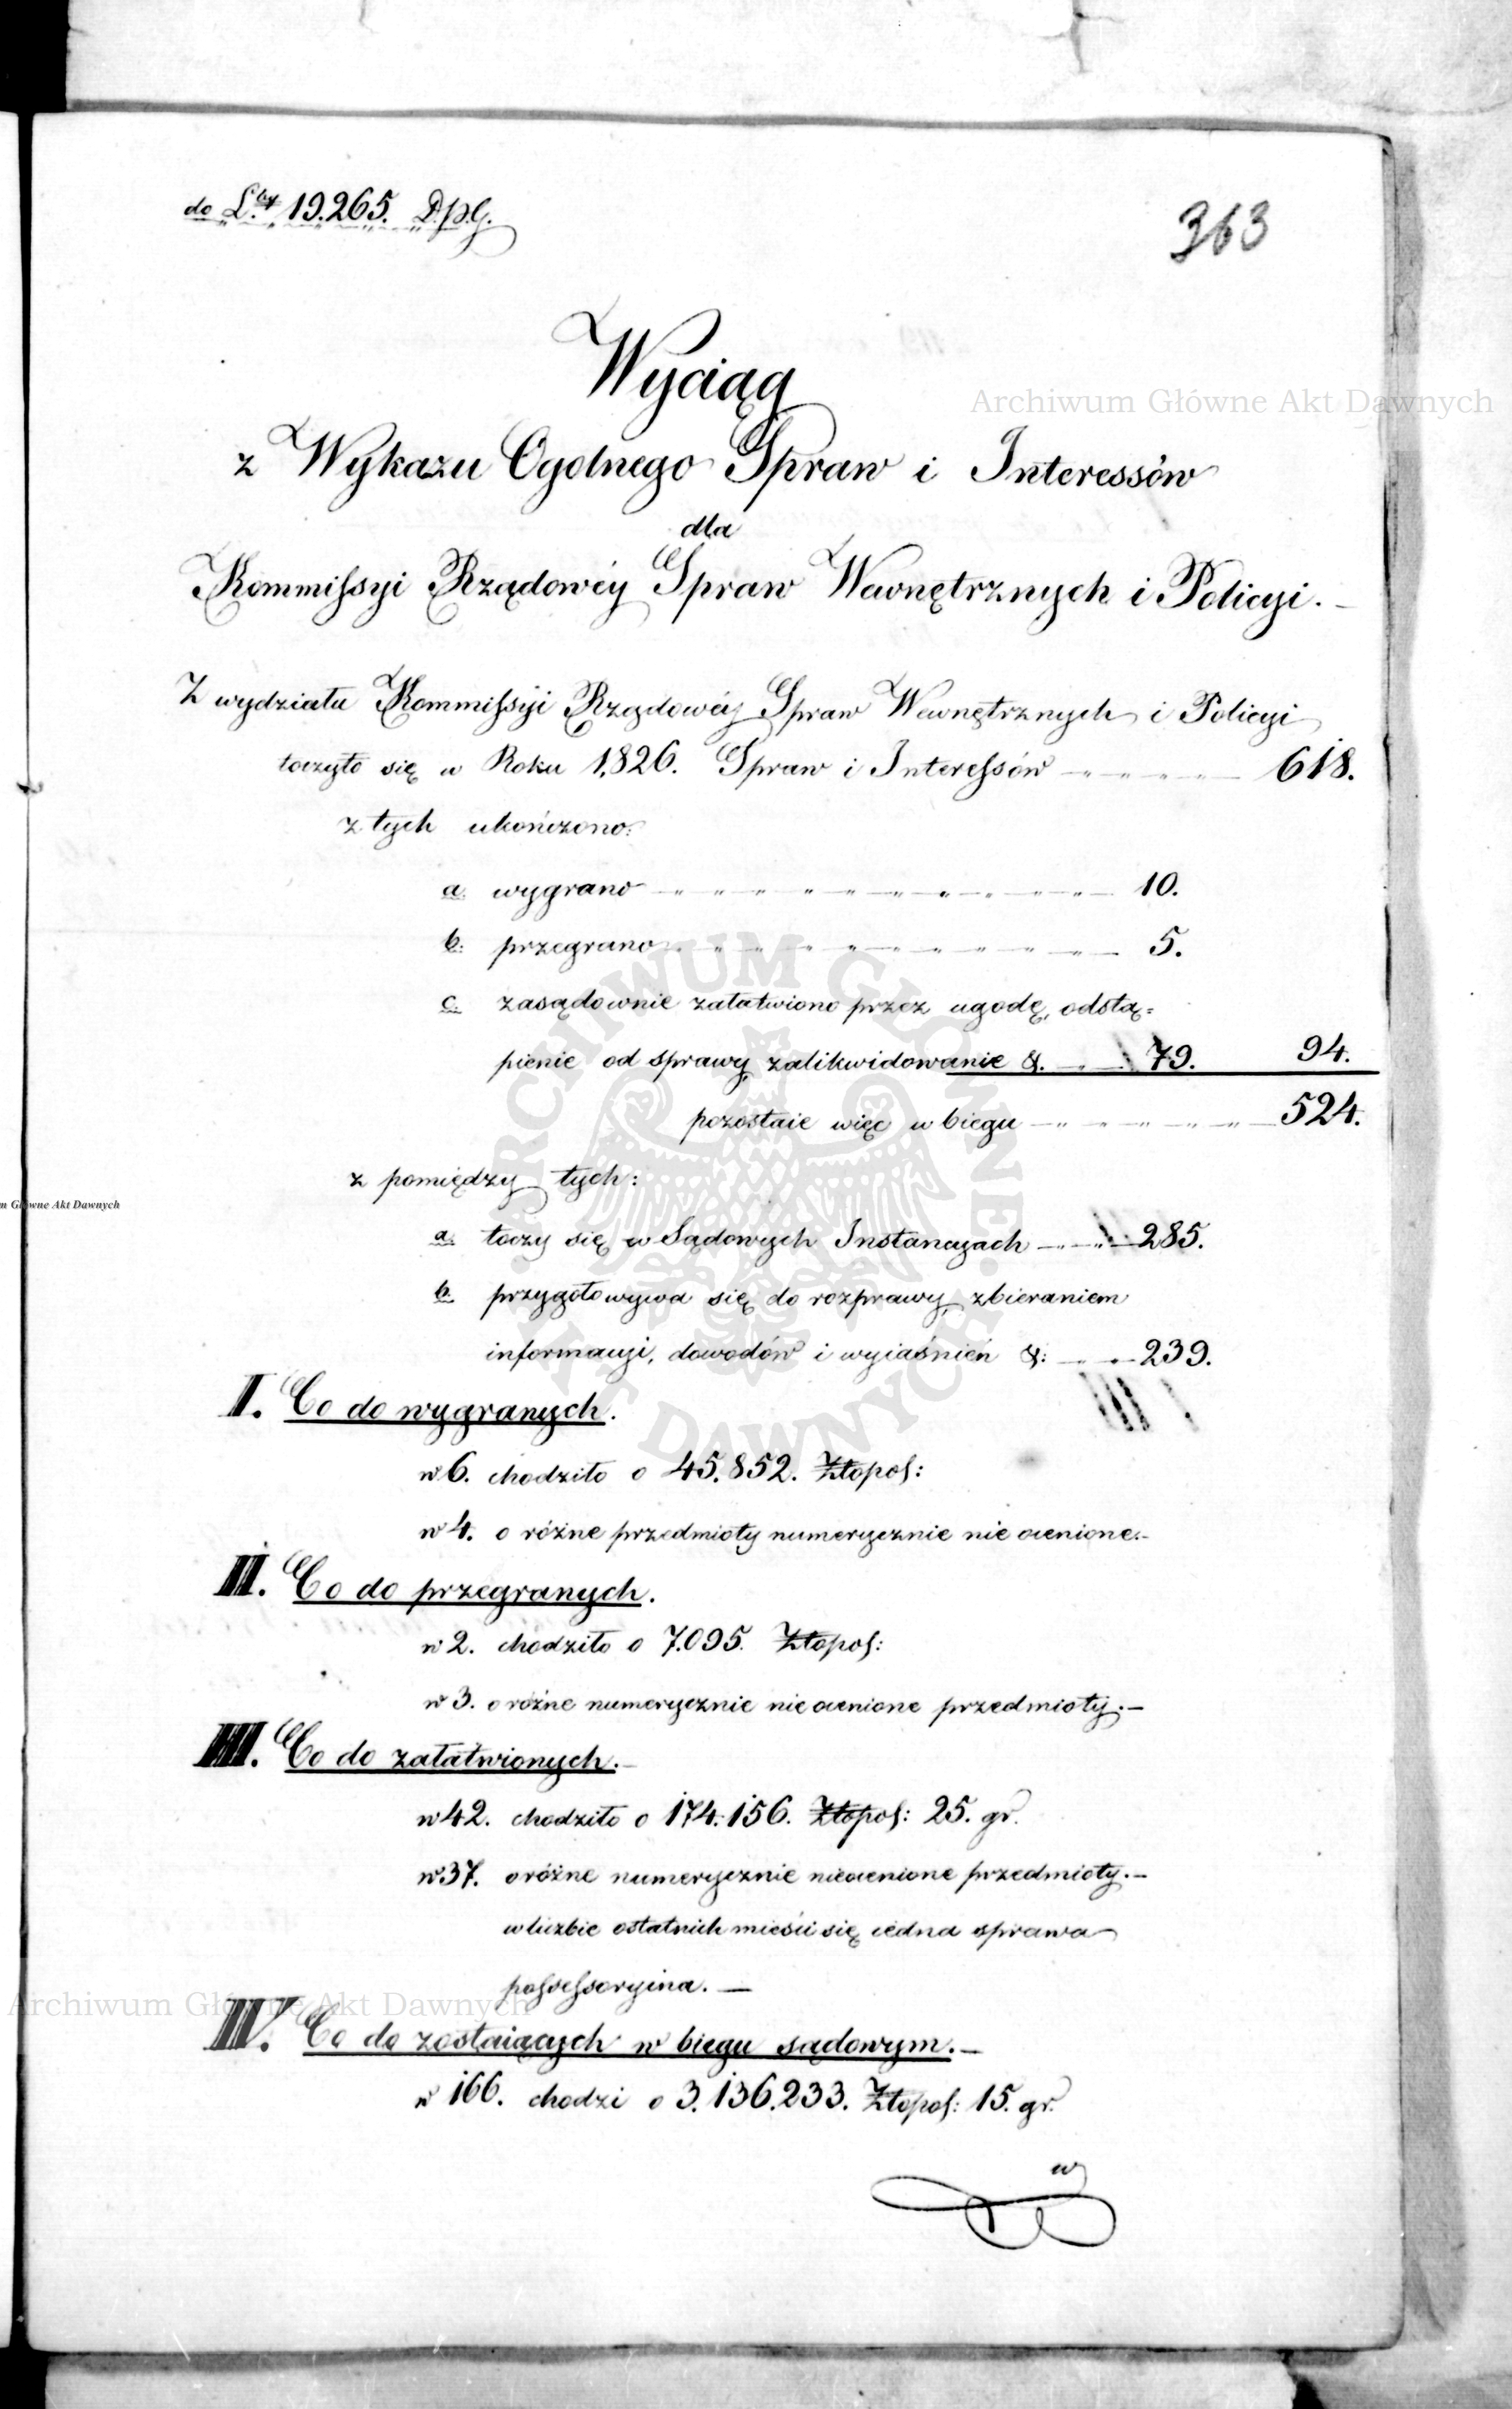 do L.by 19.265. D.p.G.
363
Wyciąg
z Wykazu Ogolnego Spraw i Interessów
dla
Kommissyi Rządowéy Spraw Wewnętrznych i Policyi.
Z wydziału Kommissyi Rządowéy Spraw Wewnętrznych i Policyi
toczyło się w Roku 1,826. Spraw i Interessów 618.
z tych ukończono:
a. wygrano 10.
b. przegrano 5.
c. zasądownie załatwiono przez ugodę, odstą=
pienie od sprawy, zalikwidowanie &. 79. 94.
pozostaie więc w biegu 524.
z pomiędzy tych:
a. toczy się w Sądowych Instancyach 285.
b. przygotowywa się do rozprawy, zbieraniem
informacyi, dowodów i wyiaśnień &: 239.
I. Co do wygranych.
w 6. chodziło o 45.852. Złopol:
w 4. o różne przedmioty numerycznie nie ocenione.-
II. Co do przegranych.
w 2. chodziło o 7.095. Złopol:
w 3. o rożne numerycznie nie ocenione przedmioty.-
III. Co do załatwionych.-
w 42. chodziło o 174.156. Złopol: 25. gr.
w 37. o różne numerycznie nieocenione przedmioty.-
w liczbie ostatnich mieści się iedna sprawa
possessoryina.-
IV. Co do zostaiących w biegu sądowym.-
w 166. chodzi o 3.136.233. Złopol: 15. gr.
w
Archiwum Główne Akt Dawnych
m Główne Akt Dawnych
ARCHIWUM GŁÓWNE AKT DAWNYCH
Archiwum Główne Akt Dawnych